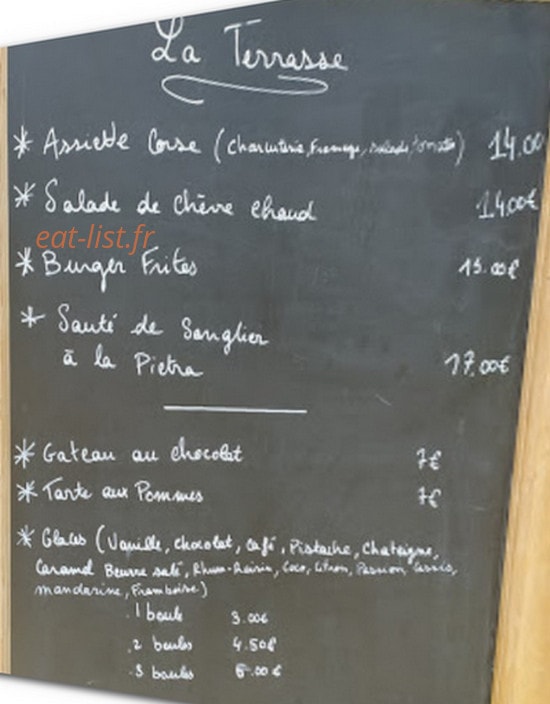 La Terrasse
* Assiette Corse (charcuterie, Fromage, salade, tomate) 14.00
* Salade de chèvre chaud 14.00€
eat-list.fr
* Burger Frites 15.00€
* Sauté de Sanglier
à la Pietra 17.00€
* Gateau au chocolat 7€
* Tarte aux Pommes 7€
* Glaces (Vanille, chocolat, café, Pistache, chataigne,
Caramel Beurre salé, Rhum-Raisin, Coco, Citron, Passion, Cassis,
mandarine, Framboise)
.1 boule 3.00€
.2 boules 4.50€
.3 boules 6.00€